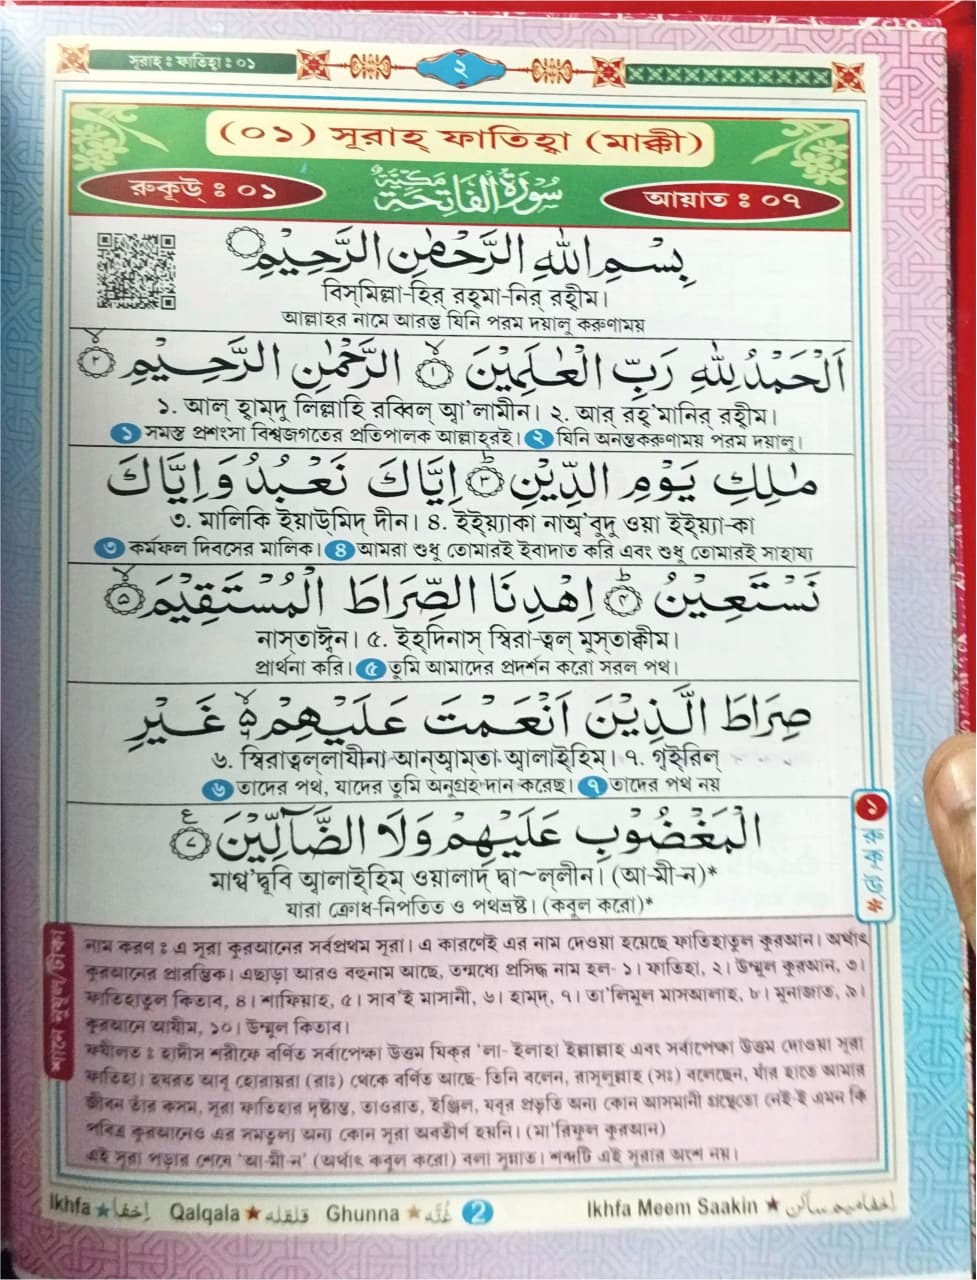 সূরাহ্ : ফাতিহ্বা : ০১
২
(০১) সূরাহ্ ফাতিহ্বা (মাক্কী)
রুকূউ : ০১
سُورَةُ الْفَاتِحَةِ مَكِّيَّةٌ
আয়াত : ০৭
بِسْمِ اللهِ الرَّحْمٰنِ الرَّحِيْمِ
বিস্‌মিল্লা-হির্ রহ্‌মা-নির্ রহীম।
আল্লাহর নামে আরম্ভ যিনি পরম দয়ালু করুণাময়
اَلْحَمْدُ لِلّٰهِ رَبِّ الْعٰلَمِيْنَ ۙ﴿١﴾ الرَّحْمٰنِ الرَّحِيْمِ ۙ﴿٢﴾
১. আল্ হাম্‌দু লিল্লাহি রব্বিল্ আ'লামীন। ২. আর্ রহ্'মানির্ রহীম।
১ সমস্ত প্রশংসা বিশ্বজগতের প্রতিপালক আল্লাহরই। ২ যিনি অনন্তকরুণাময় পরম দয়ালু।
مٰلِكِ يَوْمِ الدِّيْنِ ؕ﴿٣﴾ اِيَّاكَ نَعْبُدُ وَاِيَّاكَ
৩. মালিকি ইয়াউমিদ্ দীন। ৪. ইই্য়্যাকা না'বুদু ওয়া ইই্য়্যা-কা
৩ কর্মফল দিবসের মালিক। ৪ আমরা শুধু তোমারই ইবাদাত করি এবং শুধু তোমারই সাহায্য
نَسْتَعِيْنُ ؕ﴿٤﴾ اِهْدِنَا الصِّرَاطَ الْمُسْتَقِيْمَ ۙ﴿٥﴾
নাস্‌তাঈন। ৫. ইহ্‌দিনাস্ স্বিরা-ত্বল্ মুস্‌তাক্বীম।
প্রার্থনা করি। ৫ তুমি আমাদের প্রদর্শন করো সরল পথ।
صِرَاطَ الَّذِيْنَ اَنْعَمْتَ عَلَيْهِمْ ۙ۬ غَيْرِ
৬. স্বিরাত্বল্‌লাযীনা-আন্‌আম্‌তা-আলাইহিম্। ৭. গ্বইরিল্
৬ তাদের পথ, যাদের তুমি অনুগ্রহ-দান করেছ। ৭ তাদের পথ নয়
الْمَغْضُوْبِ عَلَيْهِمْ وَلَا الضَّآلِّيْنَ ﴿٧﴾ ع
মাগ্ব'দ্বূবি আলাইহিম্ ওয়ালাদ্ দ্বা~ল্‌লীন। (আ-মী-ন)*
যারা ক্রোধ-নিপতিত ও পথভ্রষ্ট। (কবুল করো)*
১
শানে নুযূল/টীকা
নাম করণ : এ সূরা কুরআনের সর্বপ্রথম সূরা। এ কারণেই এর নাম দেওয়া হয়েছে ফাতিহাতুল কুরআন। অর্থাৎ
কুরআনের প্রারম্ভিক। এছাড়া আরও বহুনাম আছে, তন্মধ্যে প্রসিদ্ধ নাম হল- ১। ফাতিহা, ২। উম্মুল কুরআন, ৩।
ফাতিহাতুল কিতাব, ৪। শাফিয়াহ, ৫। সাব'ই মাসানী, ৬। হাম্‌দ, ৭। তা'লিমুল মাসআলাহ, ৮। মুনাজাত, ৯।
কুরআনে আযীম, ১০। উম্মুল কিতাব।
ফযীলত : হাদীস শরীফে বর্ণিত সর্বাপেক্ষা উত্তম যিক্‌র 'লা- ইলাহা ইল্লাল্লাহ এবং সর্বাপেক্ষা উত্তম দোওয়া সূরা
ফাতিহা। হযরত আবু হোরায়রা (রাঃ) থেকে বর্ণিত আছে- তিনি বলেন, রাসূলুল্লাহ (সঃ) বলেছেন, যাঁর হাতে আমার
জীবন তাঁর কসম, সূরা ফাতিহার দৃষ্টান্ত, তাওরাত, ইঞ্জিল, যবুর প্রভৃতি অন্য কোন আসমানী গ্রন্থেতো নেই-ই এমন কি
পবিত্র কুরআনেও এর সমতুল্য অন্য কোন সূরা অবতীর্ণ হয়নি। (মা'রিফুল কুরআন)
এই সূরা পড়ার শেষে 'আ-মী-ন' (অর্থাৎ কবুল করো) বলা সুন্নাত। শব্দটি এই সূরার অংশ নয়।
Ikhfa ★ اِخفا Qalqala ★ قلقله Ghunna ★ غُنّه 2 Ikhfa Meem Saakin ★ اِخفا میم ساکن